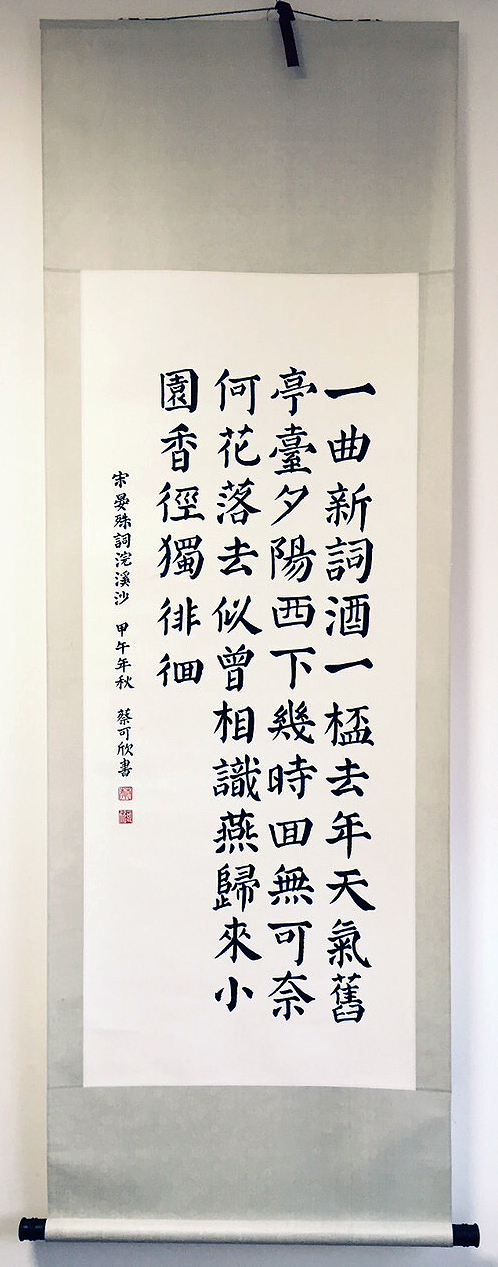 一曲新詞酒一桮去年天氣舊
亭臺夕陽西下幾時回無可奈
何花落去似曾相識燕歸來小
園香徑獨徘徊
宋晏殊詞浣溪沙 甲午年秋 蔡可欣書